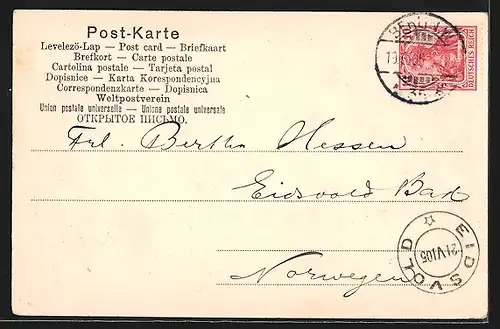 Post-Karte
Levelező-Lap — Post card — Briefkaart
Brefkort — Carte postale
Cartolina postale — Tarjeta postal
Dopisnice — Karta Korespondencyjna
Correspondenzkarte — Dopisnica
Weltpostverein
Union postale universelle — Unione postale universale
ОТКРЫТОЕ ПИСЬМО.
DEUTSCHES REICH
Frl. Bertha Hessen
Eidsvold Bad
Norwegen
EIDSVOLD
21 VI 05